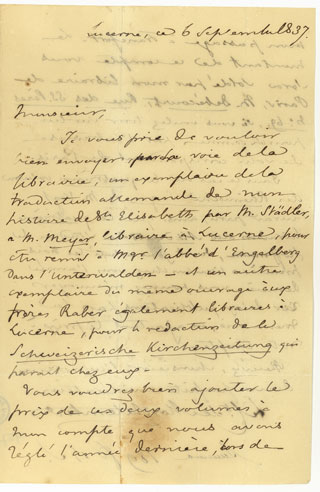 Lucerne, ce 6 Septembre 1837.
Monsieur,
Je vous prie de vouloir
bien envoyer, par la voie de la
librairie, un exemplaire de la
traduction allemande de mon
histoire de Ste Elisabeth, par M. Städler,
à M. Meyer, libraire à Lucerne, pour
être remis à Mgr l'abbé d'Engelberg
dans l'Unterwalden – et un autre
exemplaire du même ouvrage aux
frères Raber également libraires à
Lucerne, pour le rédacteur de la
Schweizerische Kirchenzeitung qui
parait chez eux –
Vous voudrez bien ajouter le
prix de ces deux volumes à
mon compte que nous avons
réglé l'année dernière, lors de